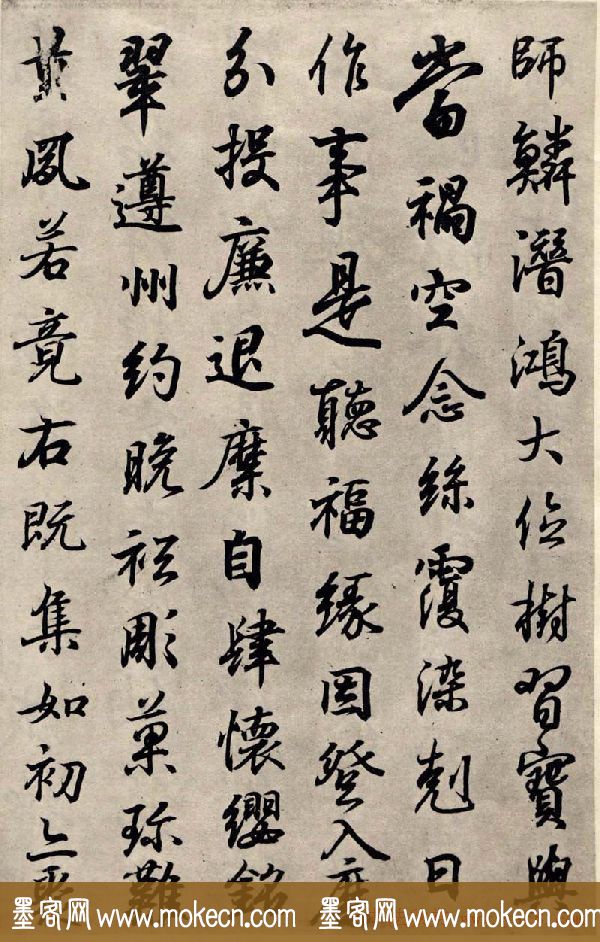 師鱗潛鴻大位樹習寶與
當禍空念絲覆染尅日
作事是聽福緣因登入
分投廉退縻自肆懷纓
翠遵州約晚彫菓珎
夙若竟右既集如初亦
墨客网 www.mokecn.com 墨客网 www.mokecn.com